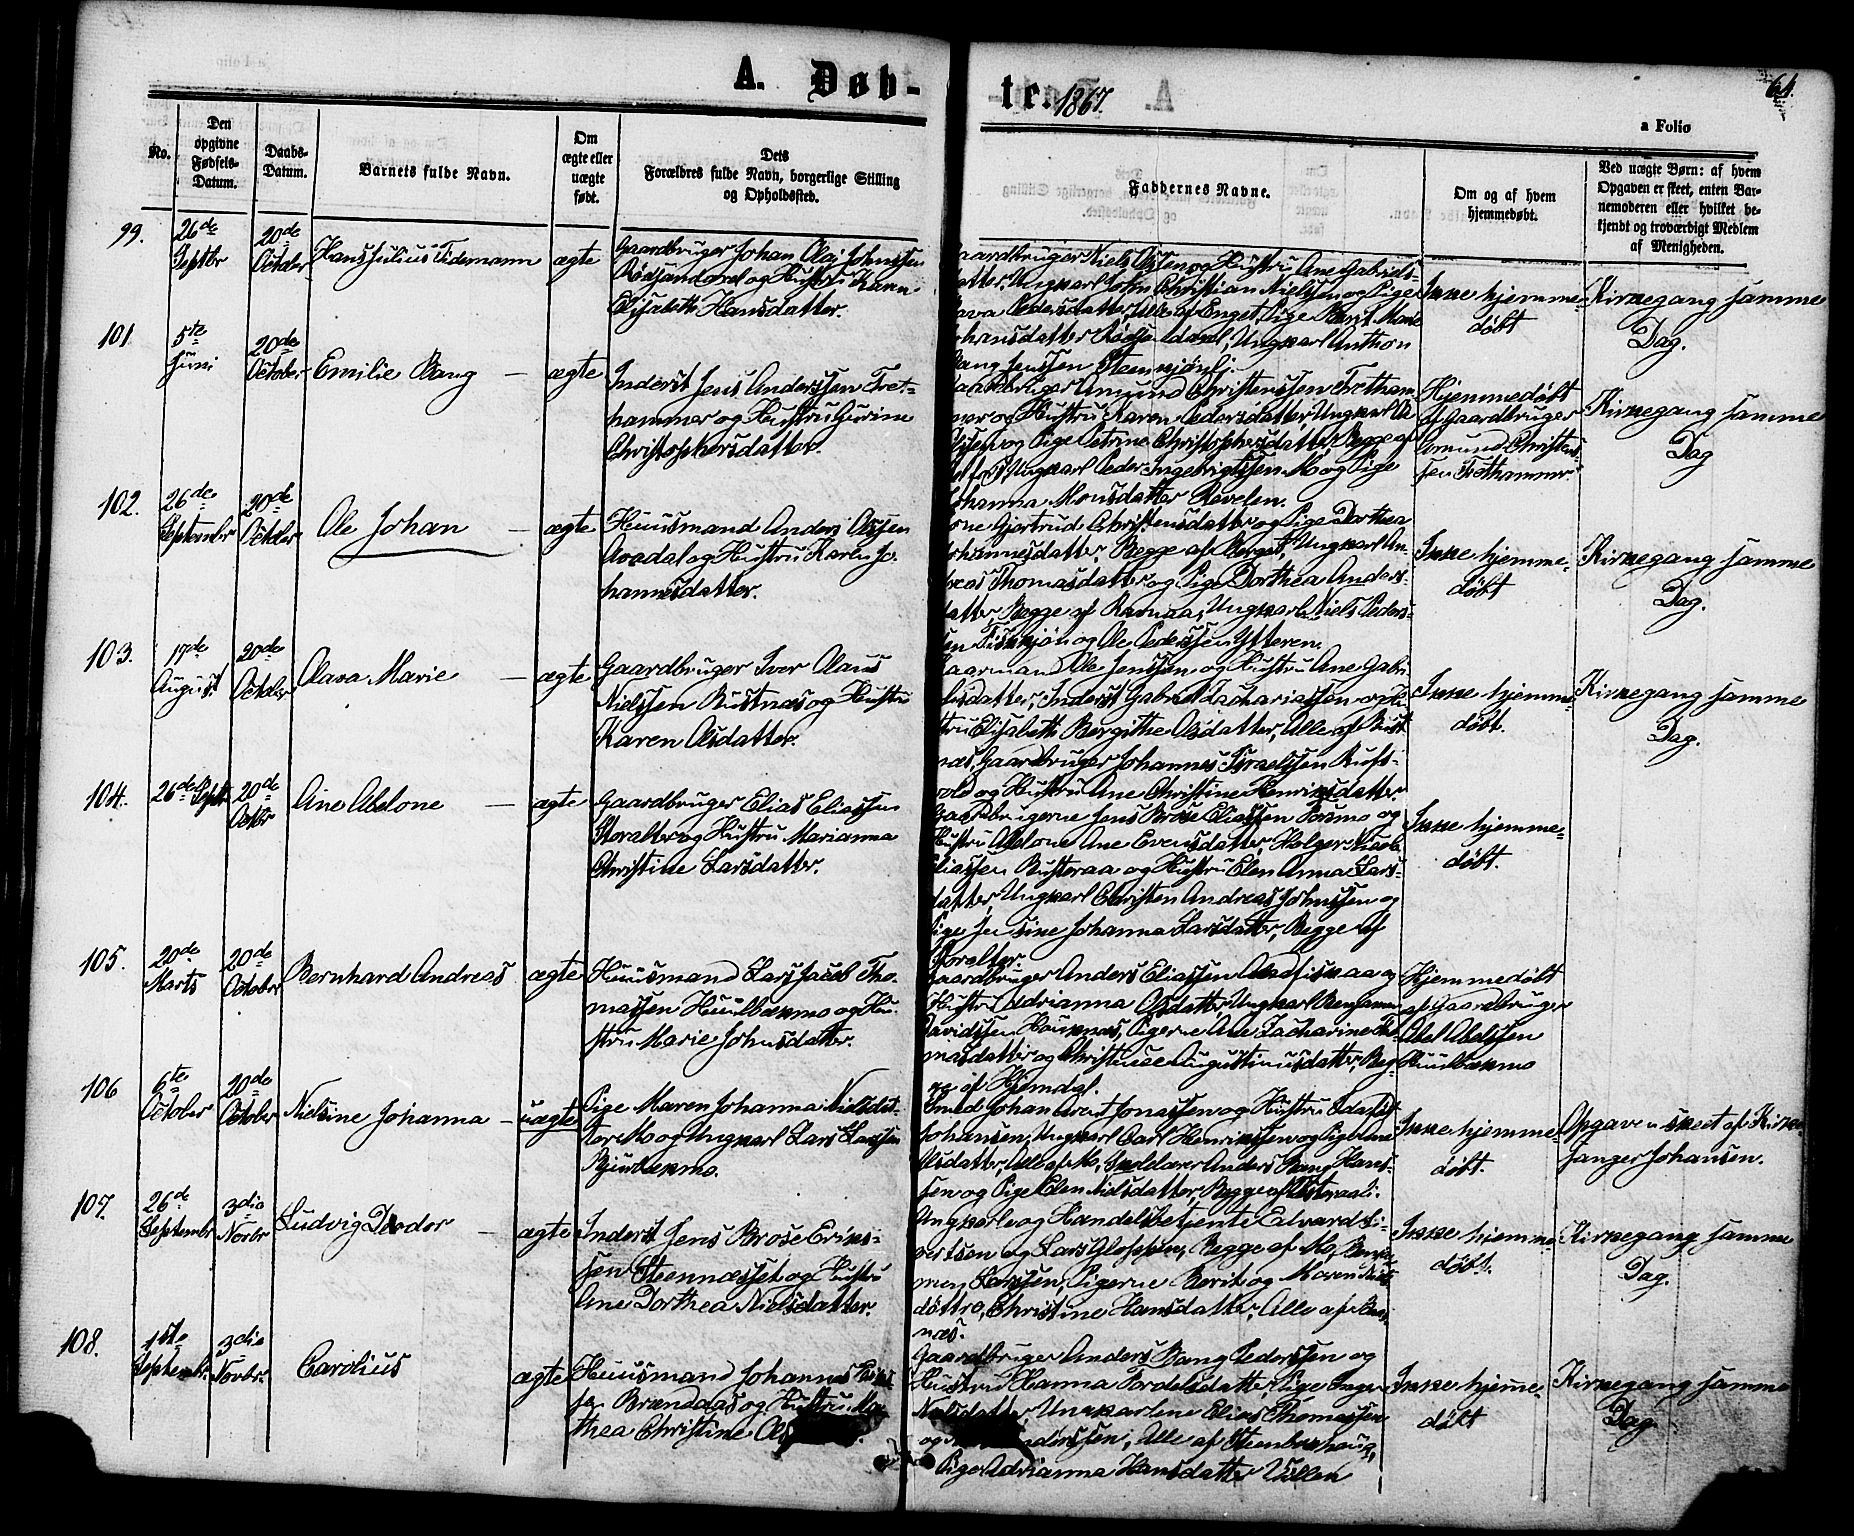 A. Døb-
te. 1867.
64.
a Folio
No.
Den
opgivne
Fødsels-
Datum.
Daabs-
Datum.
Barnets fulde Navn.
Om
ægte eller
uægte
født.
Dets
Forældres fulde Navn, borgerlige Stilling
og Opholdssted.
Faddernes Navne.
Om og af hvem
hjemmedøbt.
Ved uægte Børn: af hvem
Opgaven er skeet, enten Bar-
nemoderen eller hvilket be-
kjendt og troværdigt Medlem
af Menigheden.
99.
26de
Septbr
20de
October
Hans Julius Tidemann
ægte
Gaardbruger Johan Olaj Johnssen
og Hustru Karen
Elisabeth Hansdatter.
aardbruger Niels Olssen og Hustru Ane Gabriels-
datter, Ungkarl John Christian Nielssen og Pige
Pedersdatter, Alle af Enget, Pige Berit Marie
Johansdatter Ungkarl Anthon
Bang Jenssen
Ikke hjemme-
døbt
Kirkegang samme
Dag.
101
5te
Juni
20de
October
Emilie Bang
ægte
Inderst Jens Anderssen Tret-
hammer og Hustru Gurine
Christophersdatter.
Gaardbruger Amund Christenssen Tretham-
mer og Hustru Karen Pedersdatter, Ungkarl
Olssen og Pige Petrine Christophersdatter Begge af
Ungkarl Peder Ingebrigtssen Mo og Pige
Johanna Monsdatter Revelen.
Hjemmedøbt
af Gaardbruger
Amund Christens-
sen Trethammer.
Kirkegang samme
Dag
102.
26de
September
20de
October
Ole Johan
ægte
Huusmand Anders Olssen
Avadal og Hustru Karen Jo-
hannesdatter.
Kone Gjertrud Christensdatter og Pige Dorthea
Johannesdatter, Begge af Berget, Ungkarl An-
dreas Thomasdatter og Pige Dorthea Anders-
datter, Begge af Ravnaa, Ungkarl Niels Peders-
sen og Ole Pedersen Ytteren.
Ikke hjemme-
døbt
Kirkegang samme
Dag.
103.
17de
August
20de
October
Olava Marie
ægte
Gaardbruger Iver Olaus
Nielssen Bustnæs og Hustru
Karen Olsdatter.
Kaarmand Ole Jenssen og Hustru Ane Gabri-
elsdatter, Inderst Gabriel Zachariassen og Hu-
stru Elisabeth Bergithe Olsdatter, Alle af Bust-
næs, Gaardbruger Johannes Israelssen Rufs-
vold og Hustru Ane Christine Henriksdatter.
Ikke hjemme-
døbt.
Kirkegang samme
Dag.
104.
26de Septbr
20de
Octbr
Ane Abelone
ægte
Gaardbruger Elias Eliassen
Storalter og Hustru Marianna
Christine Larsdatter.
Gaardbrugerne Jens Brose Eliassen Forsmo og
Hustru Abelone Ane Evensdatter, Holger Nicolai
Eliassen Busteraa og Hustru Elen Anna Lars-
datter, Ungkarl Christen Andreas Johnssen og
Pige Jensine Johanna Larsdatter, Begge af
Storalter.
Ikke hjemme-
døbt.
105.
20de
Marts
20de
October
Bernhard Andreas
ægte
Huusmand Lars Jacob Tho-
massen Huulbækmo og Hu-
stru Marie Johnsdatter.
Gaardbruger Anders Eliassen og
Hustru Adrianna Olsdatter, Ungkarl Benjamin
Davidssen Hauknæs, Pigerne Ane Zacharine Tho-
masdatter og Christine Augustinusdatter, Beg-
ge af Hjemdal.
Hjemmedøbt
af Gaardbruger
Abel Abelssen
Huulbækmo
106
6te
October
20de
October
Nielsine Johanna
uægte
Pige Maren Johanna Nielsdat-
ter Mo og Ungkarl Lars Larssen
Bjurbækmo.
Smed Johan Arent Jonassen og Hustru
Johansen, Ungkarl Carl Henrikssen og Pige Ane
Olsdatter, Alle af Mo, Skolelærer Anders Bang Hans-
sen og Pige Elen Nielsdatter, Begge af
Ikke hjemme-
døbt.
Opgaven skeet af Kirke-
sanger Johansen.
107.
26de
Septembr
3die
Novbr
Ludvig Teodor
ægte
Inderst Jens Brose Eriks-
sen Steennæsset og Hustru
Ane Dorthea Nielsdatter.
Ungkarle og Handelsbetjente Edvard Si-
vertsen og Lars Begge af Mo, Benja-
men Larssen, Pigerne Berit og Maren Niels-
døttre, Christine Hansdatter, Alle af
næs.
Ikke hjemme-
døbt.
Kirkegang samme
Dag.
108.
1ste
September
3die
Novbr.
Carolius
ægte
Huusmand Johannes
sen Brændaas og Hustru Ma-
thea Christine
Gaardbruger Anders Bang Pederssen og
Hustru Hanna Tordelsdatter, Pige Inger
Nielsdatter, Ungkarlene Elias Thomassen
og Anderssen, Alle af Steenbækhaug,
Pige Adrianna Hansdatter Villen
Ikke hjemme-
døbt
Kirkegang samme
Dag